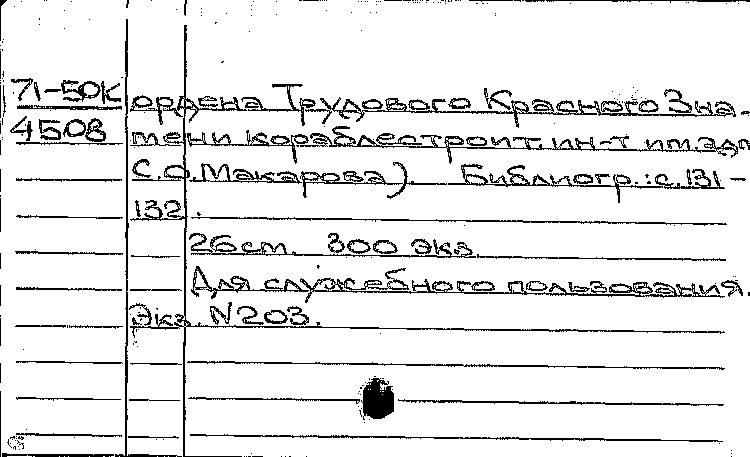 71-50К ордена Трудового Красного Зна-
4508 мени кораблестроит. ин-т им. адм
С.О. Макарова). Библиогр.: с. 131-
132.
26 см. 300 экз.
Для служебного пользования.
Экз. N 203.